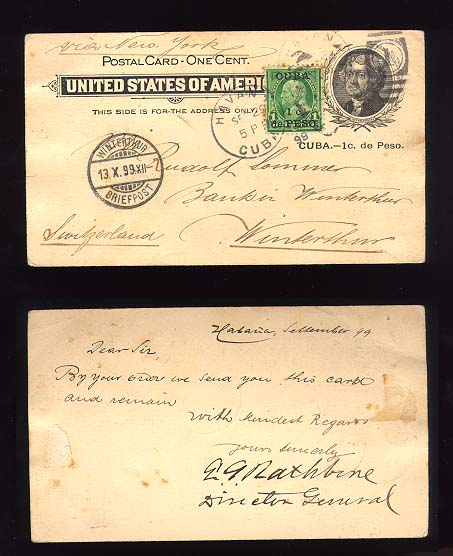 via New York
POSTAL CARD - ONE CENT.
UNITED STATES OF AMERI
THIS SIDE IS FOR THE ADDRESS ONLY.
HAVAN
5 P
CUBA
99
CUBA
1 c.
de PESO
1
1
CUBA.—1c. de Peso.
WINTERTHUR
13 X. 99. XII-
BRIEFPOST
Rudolf Sommer
Bankir Winterthur
Switzerland Winterthur
Habaña, September 99
Dear Sir,
By your order we send you this card
and remain
with kindest Regards
yours sincerely
E G Rathbone
Director General